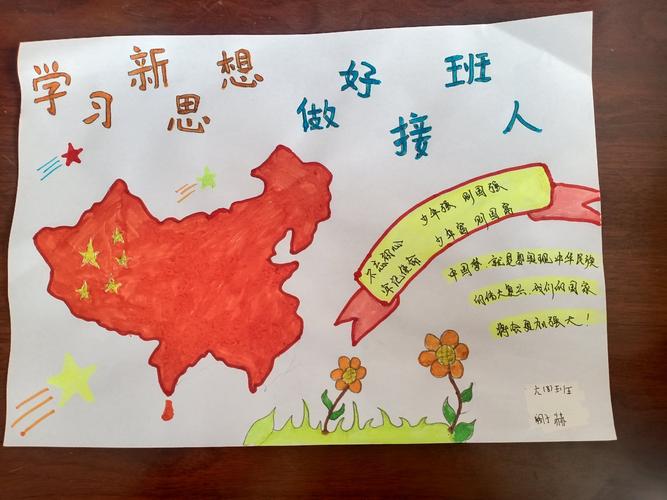 学习新思想 做好接班人
不忘初心
牢记使命
少年强 则国强
少年富 则国富
中国梦,就是要实现中华民族
的伟大复兴,我们的国家
将会更加强大!
六四班